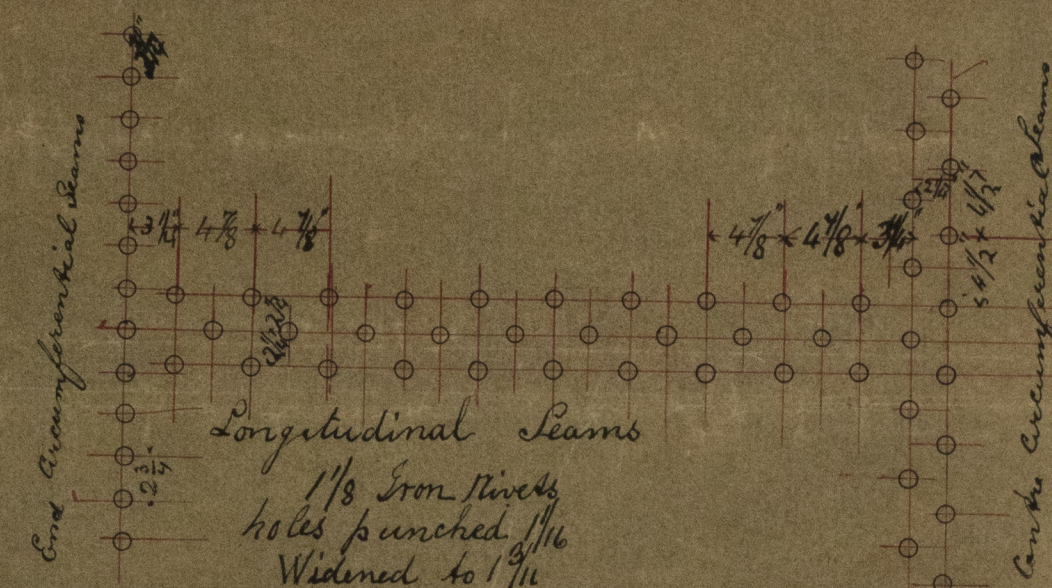 End Circumferential Seams
3 1/4" 4 7/8 4 7/8"
4 7/8" 4 7/8" 3 1/4"
4 1/2" 4 1/2
2 3/4"
Longitudinal Seams
1 1/8 Iron Rivets
holes punched 1 1/16
Widened to 1 3/11
Centre Circumferential Seams